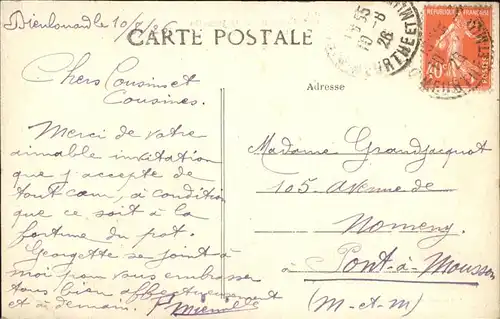 Dieulouard le 10/8/26
CARTE POSTALE
Adresse
RÉPUBLIQUE FRANÇAISE
40
MEURTHE ET M
Chers Cousins et
Cousines.
Merci de votre
aimable invitation
que j'accepte de
tout cœur, à condition
que ce soit à la
fortune du pot.
Georgette se joint à
moi pour vous embrasser
tous bien affectueusement
et à demain.
Madame Grandjacquot
105 Avenue de
Nomeny
à Pont-à-Mousson
(M-et-M)